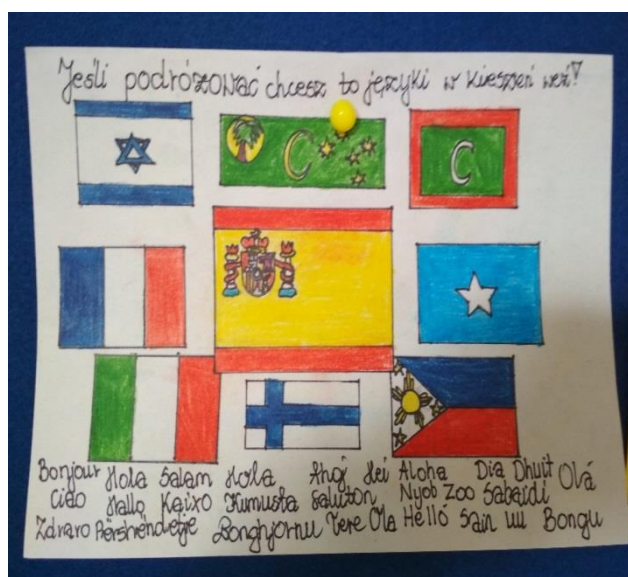 Jeśli podróżować chcesz to języki w kieszeń weź!
Bonjour Hola Salam Hola Ahoj Hei Aloha Dia Dhuit Olá
Ciao Hallo Kaixo Kumusta Saluton Nyob Zoo Sabaidi
Zdravo Përshëndetje Bonghjornu Tere Ola Helló Sain uu Bongu